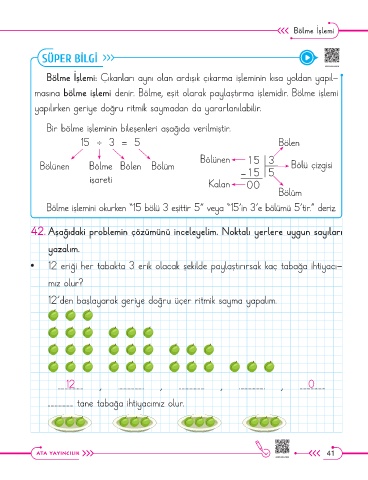 Bölme İşlemi
SÜPER BİLGİ
Bölme İşlemi: Çıkanları aynı olan ardışık çıkarma işleminin kısa yoldan yapıl-
masına bölme işlemi denir. Bölme, eşit olarak paylaştırma işlemidir. Bölme işlemi
yapılırken geriye doğru ritmik saymadan da yararlanılabilir.
Bir bölme işleminin bileşenleri aşağıda verilmiştir.
15 ÷ 3 = 5
Bölünen Bölme işareti Bölen Bölüm
Bölen
Bölünen 15 3 Bölü çizgisi
- 15 5
Kalan 00
Bölüm
Bölme işlemini okurken "15 bölü 3 eşittir 5" veya "15'in 3'e bölümü 5'tir." deriz.
42. Aşağıdaki problemin çözümünü inceleyelim. Noktalı yerlere uygun sayıları
yazalım.
• 12 eriği her tabakta 3 erik olacak şekilde paylaştırırsak kaç tabağa ihtiyacı-
mız olur?
12'den başlayarak geriye doğru üçer ritmik sayma yapalım.
12 , ........ , ........ , ........ , 0
........ tane tabağa ihtiyacımız olur.
ATA YAYINCILIK
41